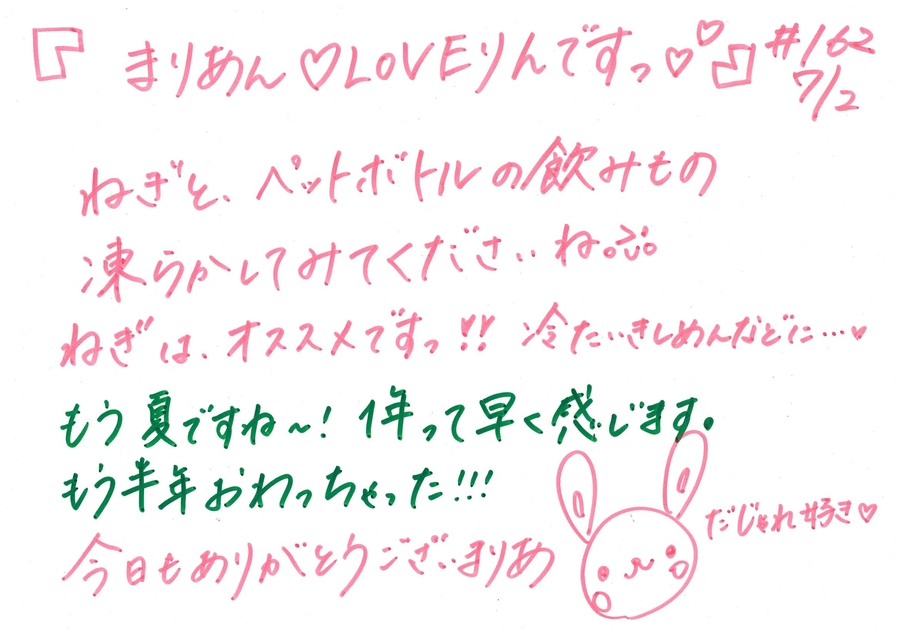 『まりあん♡LOVEりんですっ♡♡』 #162
7/2
ねぎと、ペットボトルの飲みもの
凍らかしてみてくださいね。
ねぎは、オススメですっ!! 冷たいきしめんなどに…♡
もう夏ですね〜! 1年って早く感じます。
もう半年おわっちゃった!!!
今日もありがとうございまりあ
だじゃれ好き♡